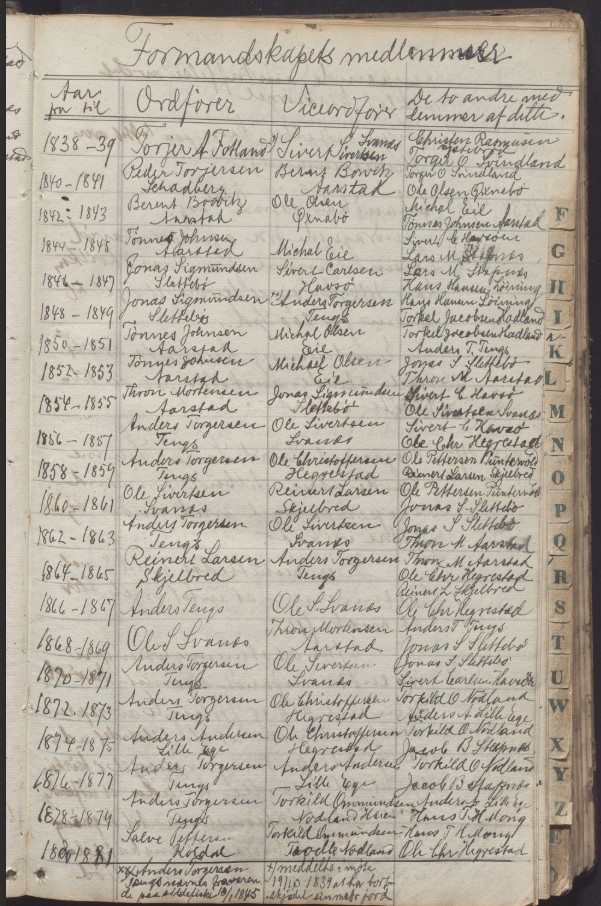 Formandskapets medlemmer
Aar
fra til
Ordfører
Viceordfører
De to andre med
lemmer af ditto.
1838-39 Torjer A Fotland Sivert Sivertsen Svanæs Christen Rasmusen
Torger O. Svindland
1840-1841 Peder Torjersen Bernt Bowitz Torger O Svindland
Schadberg Aarstad Ole Olsen Øxnabø
1842-1843 Berent Bowitz Ole Olsen Michal Eie
Aarstad Øxnabø Tønnes Johnsen Aarstad
1844-1845 Tønnes Johnsen Michal Eie Sivert C Havsøen
Aarstad Lars M Stapnes
1846-1847 Jonas Sigmundsen Sivert Carlsen Lars M. Stapnes
Slettebø Havsø Hans Hansen Lörning
1848-1849 Jonas Sigmundsen Anders Torgersen Hans Hansen Lörning
Slettebø Tengs Torkel Jacobsen Hadland
1850-1851 Tønnes Johnsen Michal Olsen Torkil Jacobsen Hadland
Aarstad Eie Anders T. Tengs
1852-1853 Tönnes Johnsen Michael Olsen Jonas S Slettebö
Aarstad Eie Thron M Aarstad
1854-1855 Thron Mortensen Jonas Sigmundsen Sivert C Havsö
Aarstad Slettebø Ole Sivertsen Svanæs
1856-1857 Anders Torgersen Ole Sivertsen Sivert C Havsö
Tengs Svanæs Ole Chr Hegrestad
1858-1859 Anders Torgersen Ole Christoffersen Ole Pettersen Puntervold
Tengs Hegrestad Reinert Larsen Skjelbred
1860-1861 Ole Sivertsen Reinert Larsen Ole Pettersen Puntervold
Svanæs Skjelbred Jonas S Slettebö
1862-1863 Anders Torgersen Ole Sivertsen Jonas S Slettebö
Tengs Svanæs Thron M Aarstad
1864-1865 Reinert Larsen Anders Torgersen Thron M Aarstad
Skjelbred Tengs Ole Chr Hegrestad
1866-1867 Anders Tengs Ole S. Svanæs Reinert L Skjelbred
Ole Chr Hegrestad
1868-1869 Ole S Svanæs Thron Mortensen Anders T Tengs
Aarstad Jonas S Slettebö
1870-1871 Anders Torgersen Ole Sivertsen Jonas S Slettebö
Tengs Svanæs Sivert Carlsen Havsö
1872-1873 Anders Torgersen Ole Christoffersen Torkild O Nodland
Tengs Hegrestad Anders A Lille Ege
1874-1875 Anders Andersen Ole Christoffersen Torkild O Nodland
Lille Ege Hegrestad Jacob B Stapnes
1876-1877 Anders Torgersen Anders Andersen Torkild O Nodland
Tengs Lille Ege Jacob B Stapnes
1878-1879 Anders Torgersen Torkild Ommundsen Anders A Lille Ege
Tengs Nodland Hans T H Mong
1881 Salve Pettersen Torkild Ommundsen Hans T H Mong
Nodland Ole Chr Hegrestad
Anders Torgersen
Tengs
1845
meddelte i møte
19/10 1839 at han
F
G
H
I
K
L
M
N
O
P
Q
R
S
T
U
W
X
Y
Z